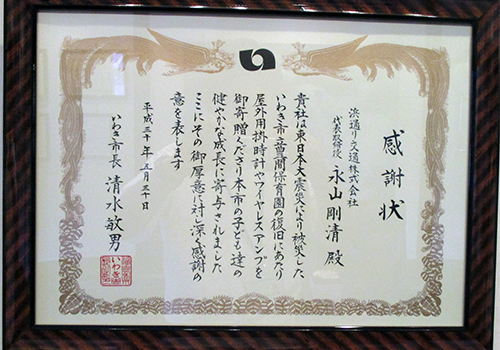 感謝状
浜通り交通株式会社
代表取締役 永山剛清 殿
貴社は東日本大震災により被災した
いわき市立豊間保育園の復旧にあたり
屋外用掛時計やワイヤレスアンプを
御寄贈くださり本市の子ども達の
健やかな成長に寄与されました
ここにその御厚意に対し深く感謝の
意を表します
平成三十年三月三十日
いわき市長 清水敏男